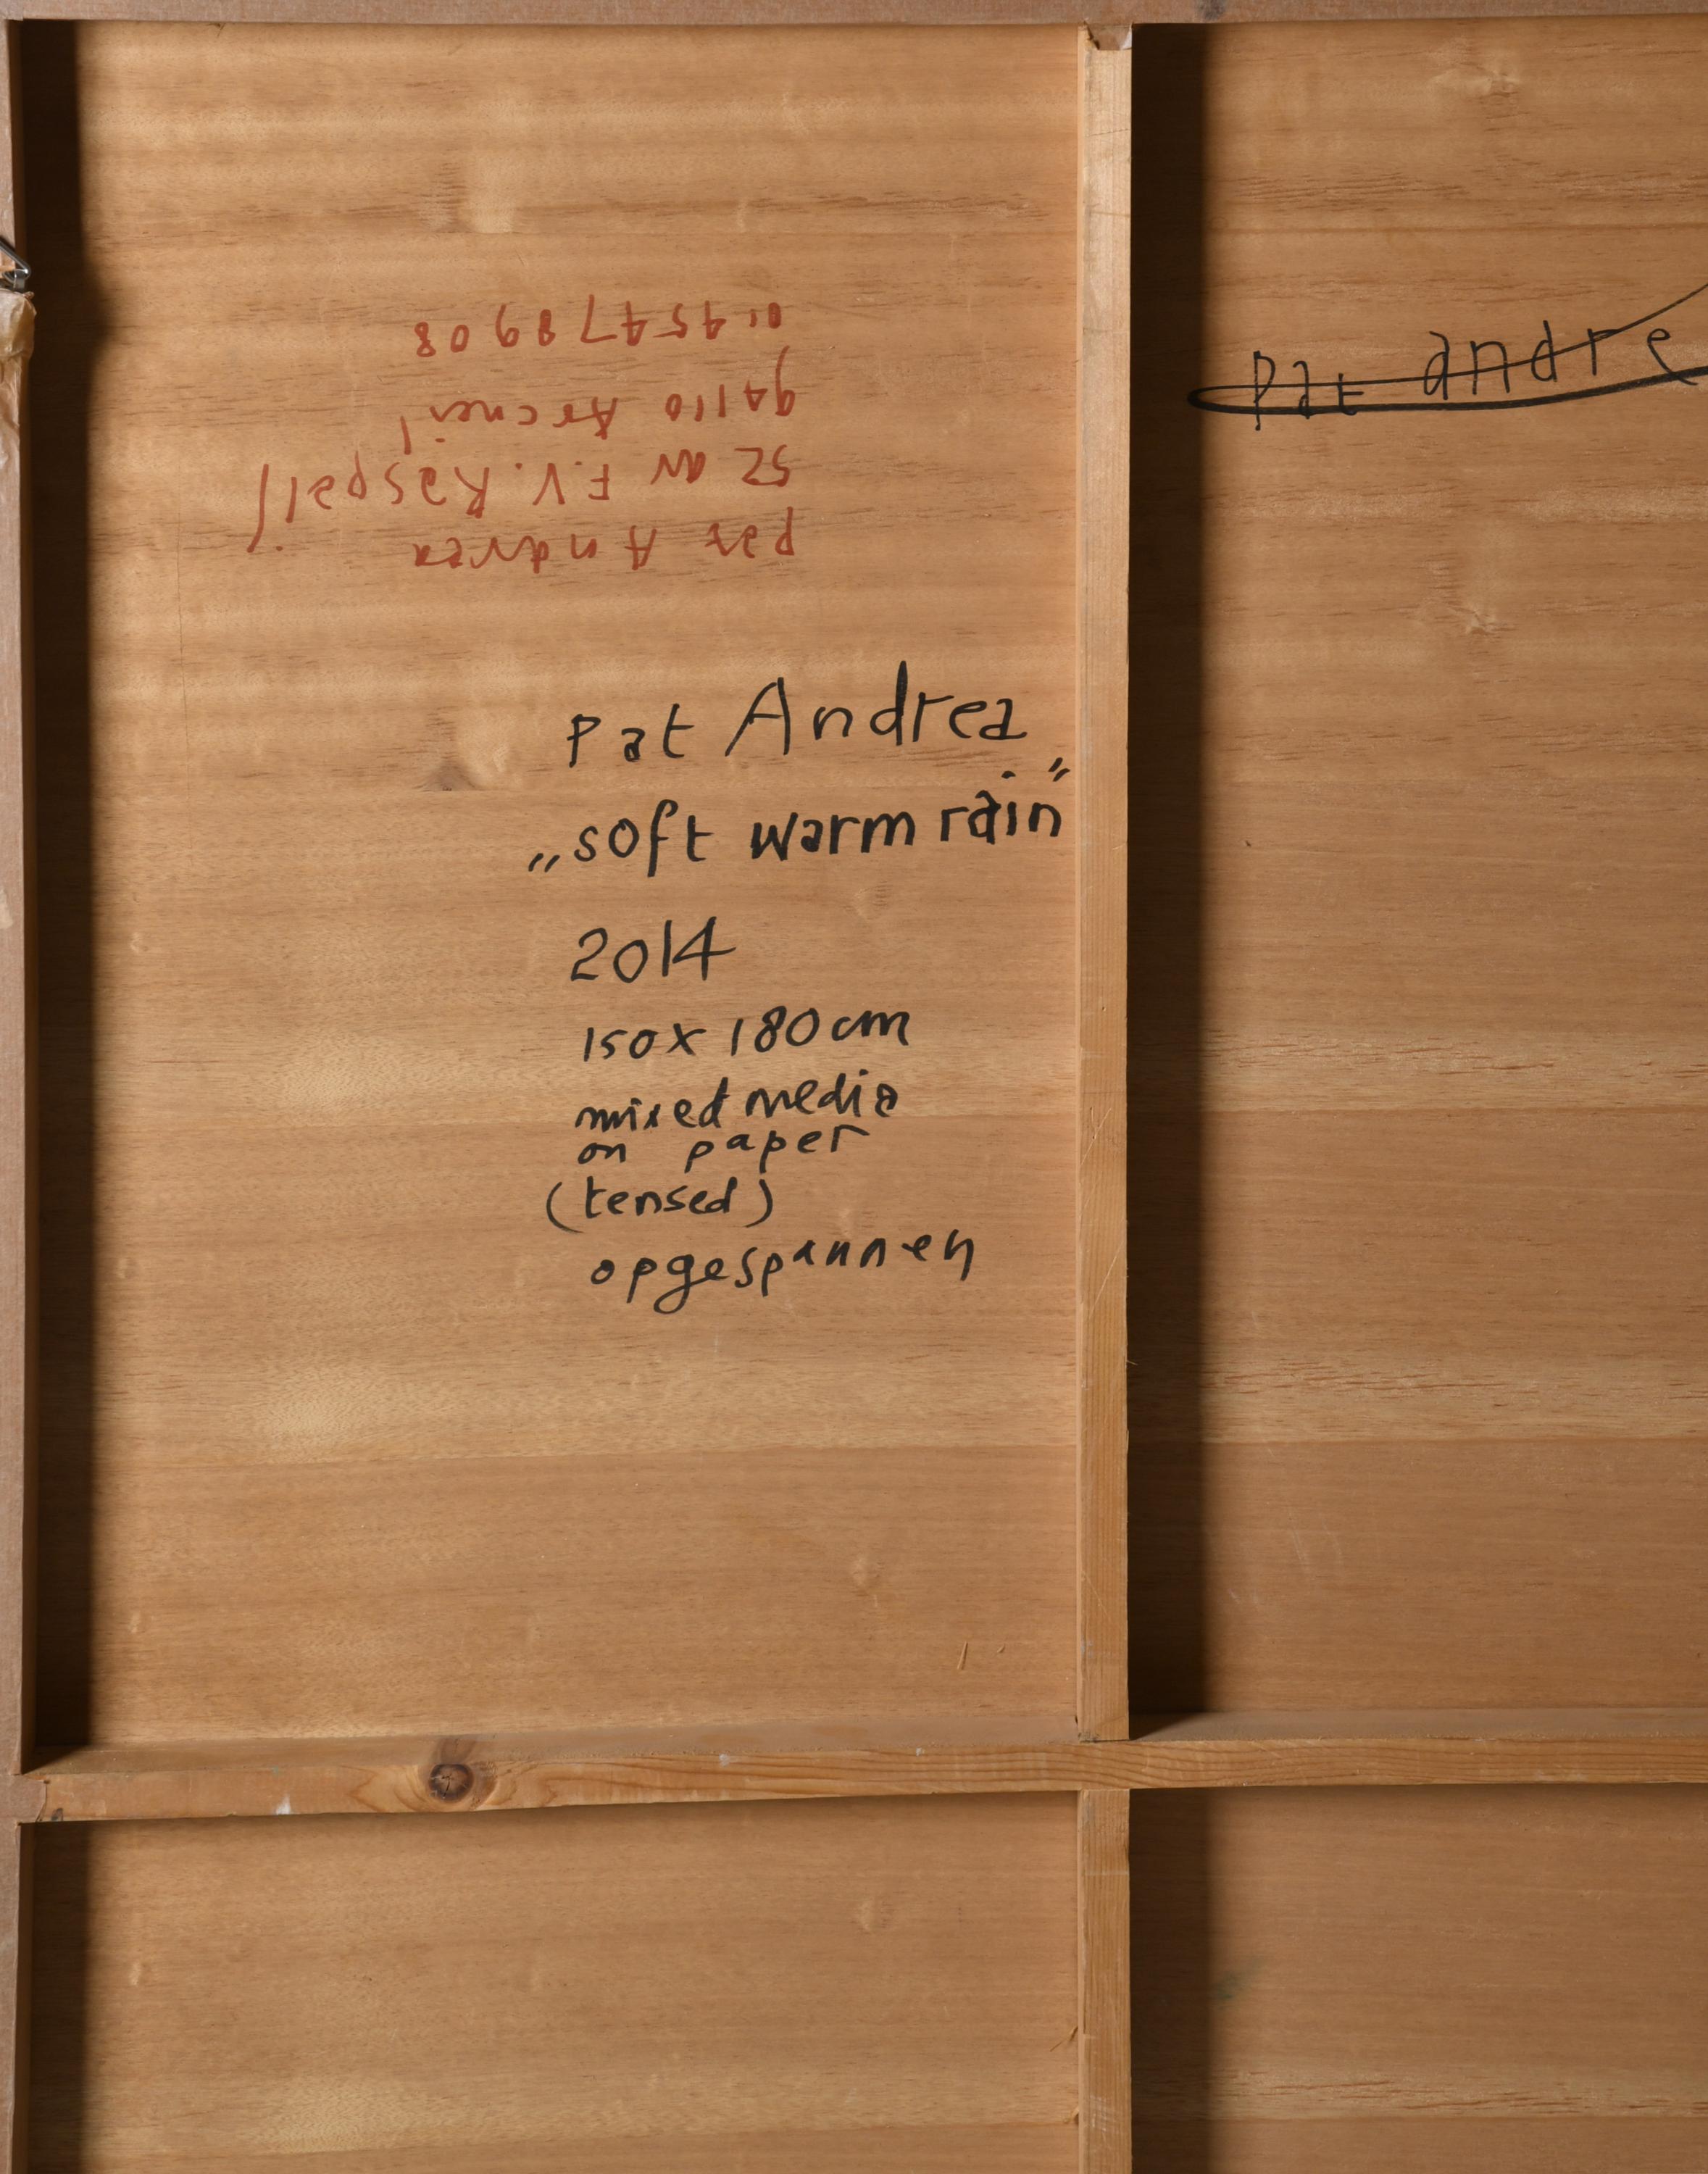 Pat Andrea
52 av F.V. Raspail
94110 Arcueil
01 45478908
Pat Andrea
„soft warm rain”
2014
150 x 180 cm
mixed media
on paper
(tensed)
opgespannen
Pat andre